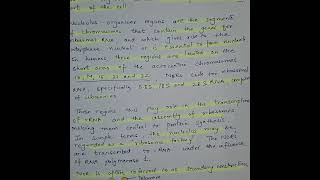 part of the cell
Nucleolus organiser regions are the segments
of chromosomes that contain the genes for
ribosomal RNA and which gives rise to the
interphase nucleoli or essential to form nucleoli
In humans these regions are located on the
short arms of the acrocentric chromosomes
13, 14, 15, 21 and 22. NORs code for ribosomal
RNA, specifically 5.8S, 18S and 28S rRNA
of ribosomes
These regions thus play role in the transcription
of rRNA and the assembly of ribosomes
making them central to protein synthesis.
In simple terms, the nucleolus may be
regarded as a "ribosome factory". The NORs
are transcribed to RNA under the influence
of RNA polymerase I.
NOR is often referred to as secondary constriction
Telomere